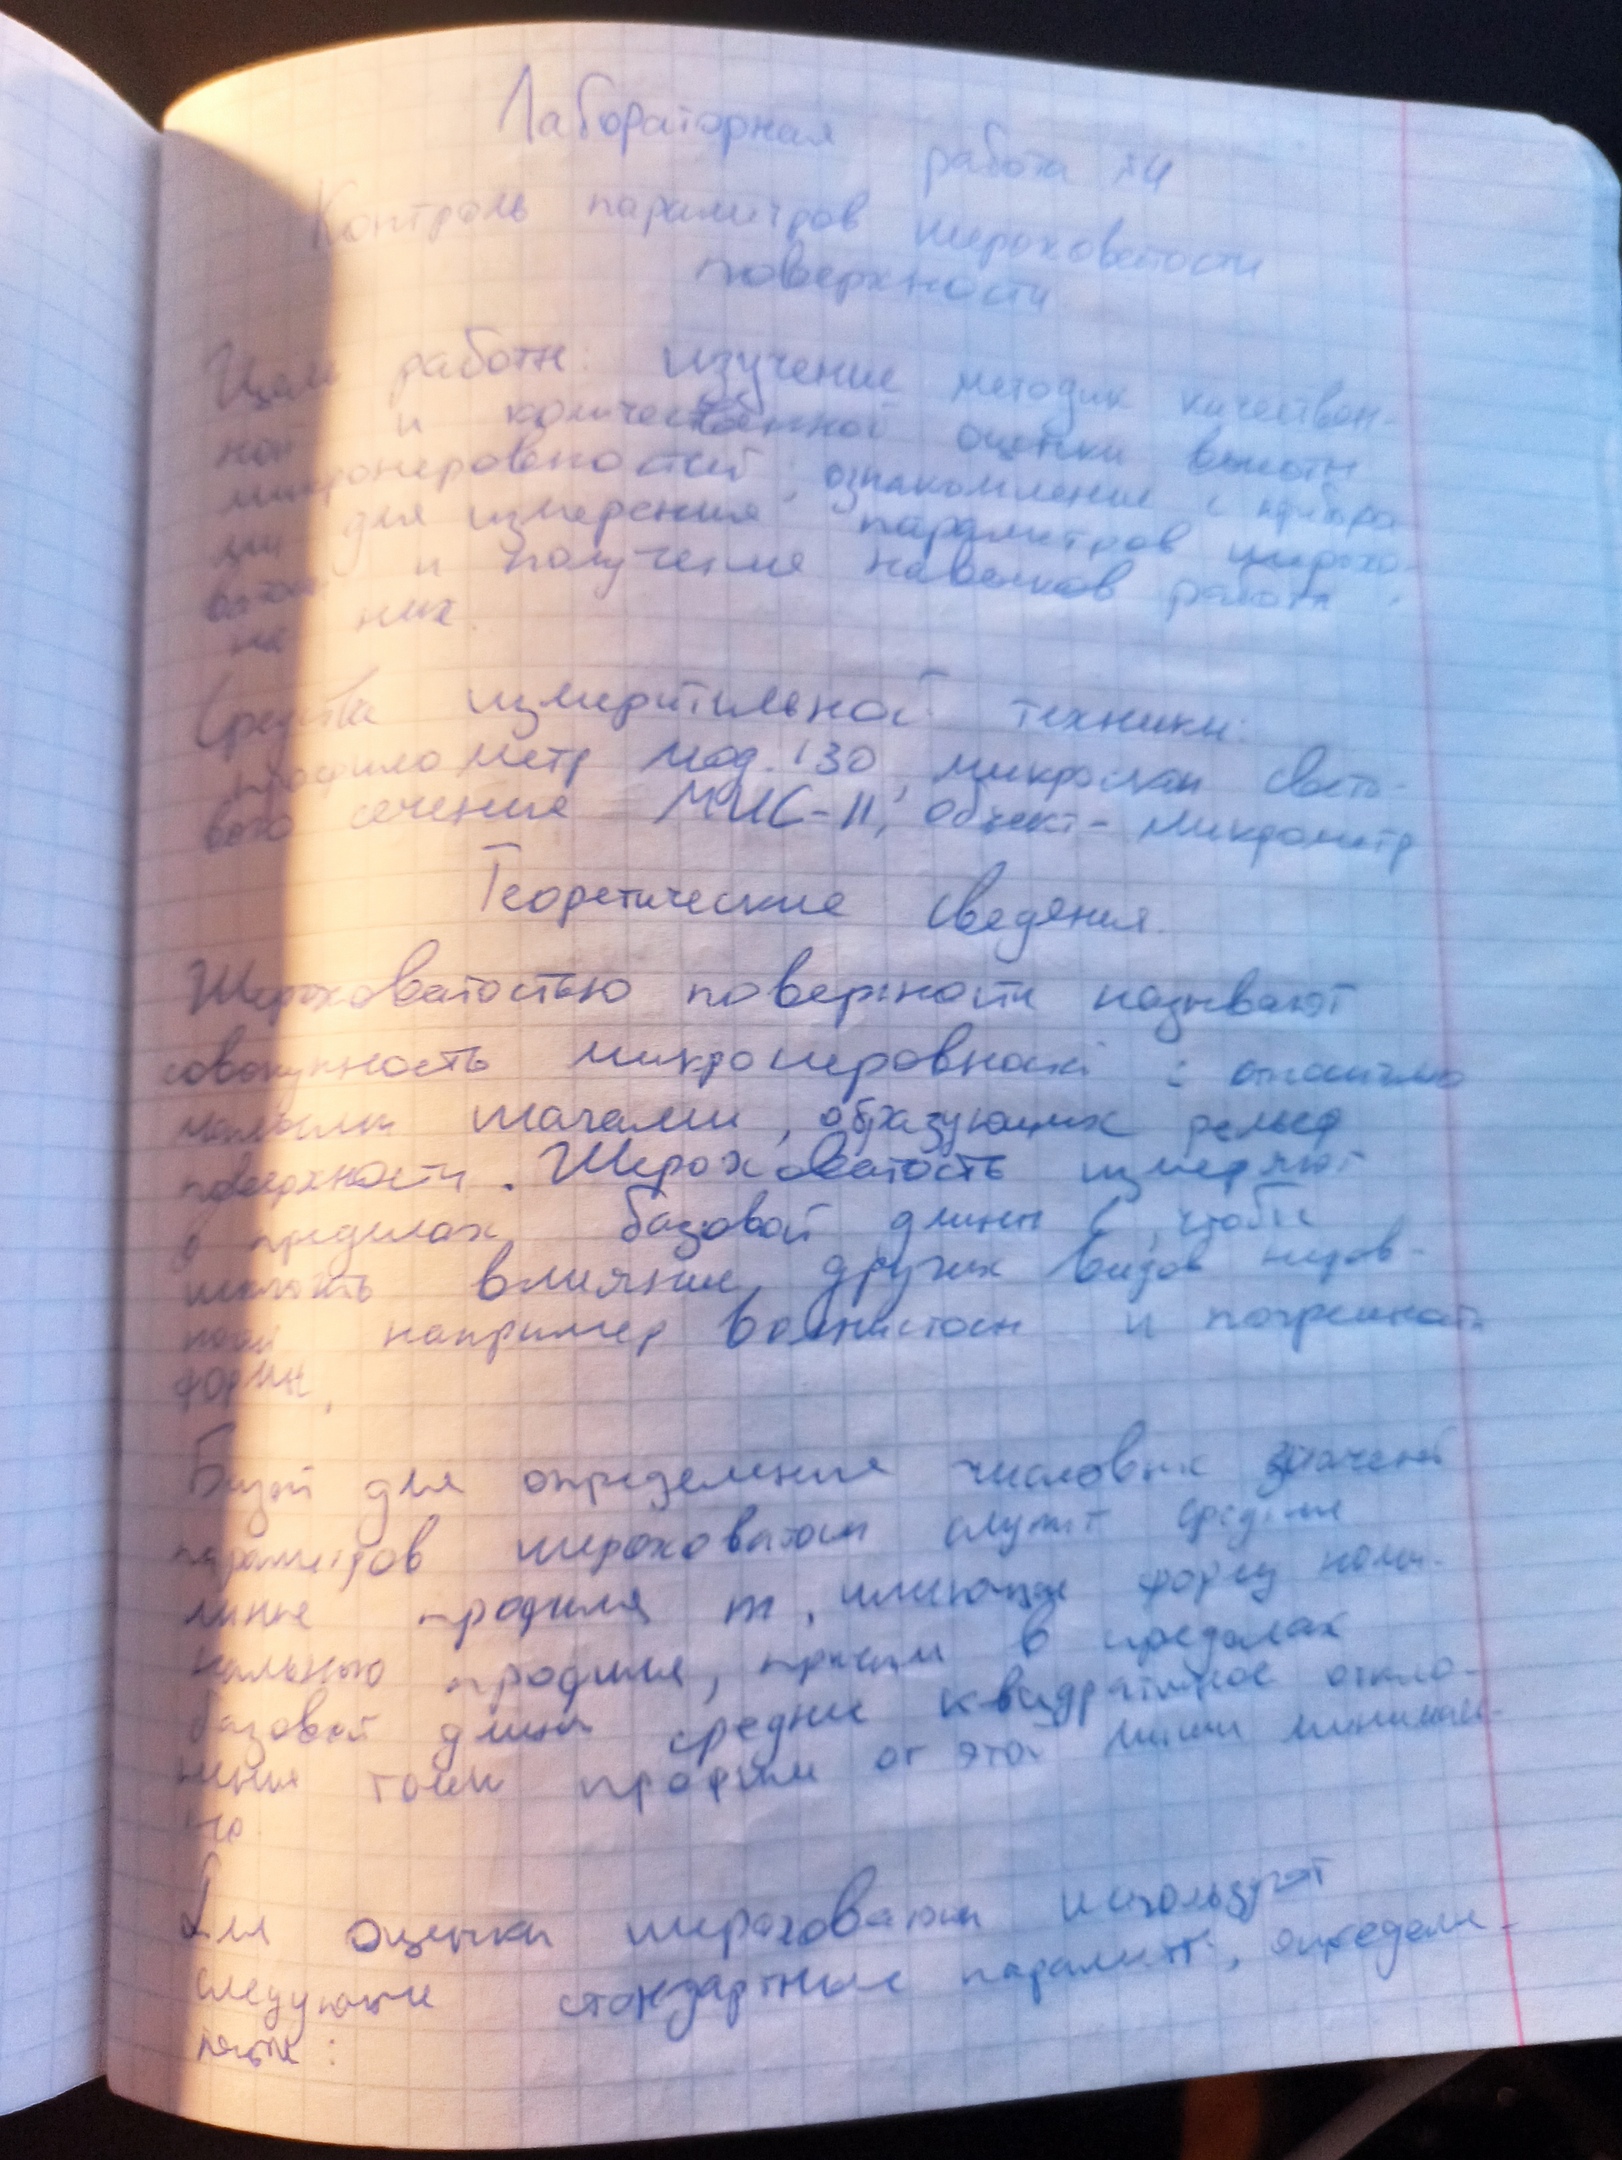 Лабораторная работа №4
Контроль параметров шероховатости
поверхности
Цель работы: изучение методик качествен-
ной и количественной оценки высоты
микронеровностей, ознакомление с прибора
ми для измерения параметров шерохо-
ватости и получение навыков работы
на них.
Средства измерительной техники:
профилометр мод. 130, микроскоп свето-
вого сечения МИС-11, объект-микрометр
Теоретические сведения.
Шероховатостью поверхности называют
совокупность микронеровностей с относительно
малыми шагами, образующих рельеф
поверхности. Шероховатость измеряют
в пределах базовой длины l, чтобы
исключить влияние других видов неров-
ностей например волнистости и погрешности
формы.
Базой для определения числовых значений
параметров шероховатости служит средняя
линия профиля m, имеющая форму номи-
нального профиля, причем в пределах
базовой длины среднее квадратичное откло-
нение точек профиля от этой линии минималь-
но.
Для оценки шероховатости используют
следующие стандартные параметры, определя-